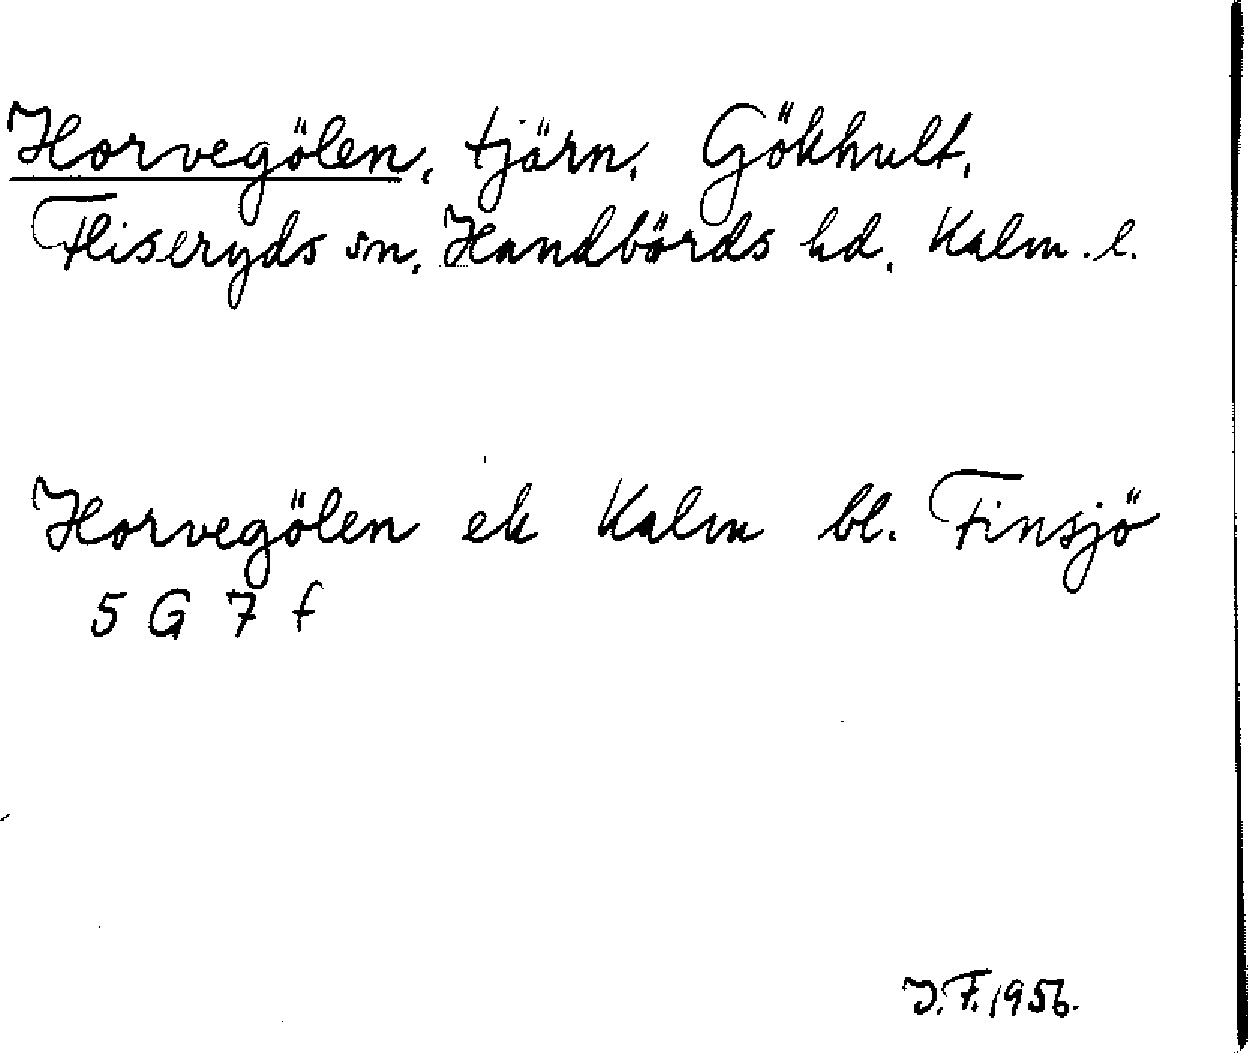 Horvegölen, tjärn, Gökhult,
Fliseryds sn, Handbörds hd, Kalm. l.
Horvegölen ek Kalm bl. Finsjö
5 G 7 f
J.F. 1956.